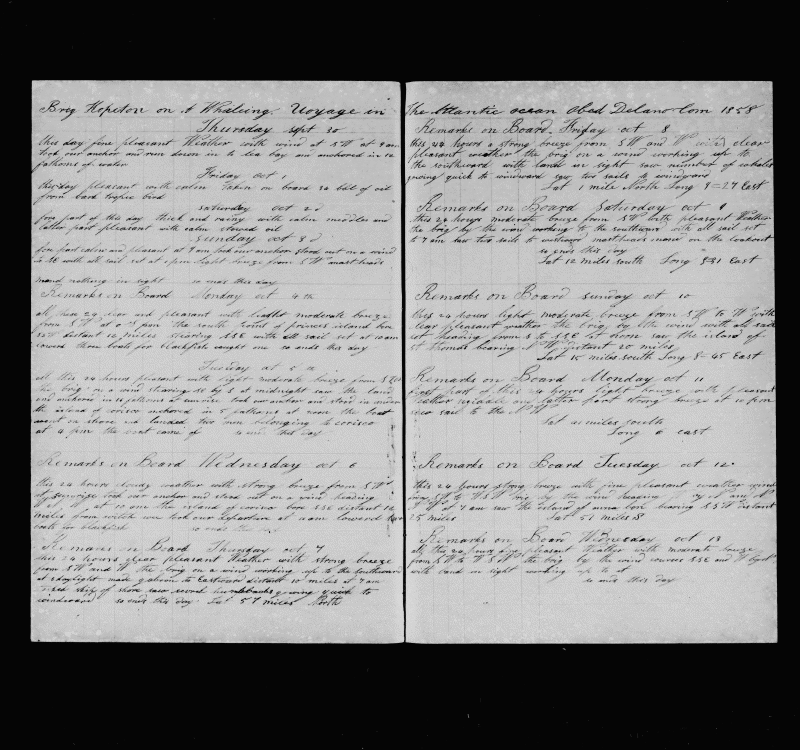 Brig Hopeton on A Whaleing Voyage in
Thursday spt 30
this day fine pleasant Weather with wind at SW at 9 am
took our anchor and run down in to bay and anchored in 12
fathoms of water
Friday oct 1
this day pleasant with calm taken on board 32 bbls of oil
from bark
saturday oct 2d
fore part of this day thick and rainy with calm middle and
latter part pleasant with calm stowed oil
sunday oct 3d
fore part calm and pleasant at 9 am took our anchor stood out on a wind
to SE with all sail set at 1 pm light breeze from SW mast heads
maned nothing in sight so ends this day
Remarks on Board Monday oct 4th
all this 24 clear and pleasant with light moderate breeze
from SW at 6 pm the south Point of princes island bore
SSW distant 12 miles stearing SSE with all sail set at 10 am
lowered three boats for blackfish caught one so ends this day
Tuesday oct 5th
all this 24 hours pleasant with light moderate breeze from S
the brig on a wind at midnight saw the land
and anchored in 14 fathoms at sunrise took our anchor and stood in under
the island of corisco anchored in 5 fathoms at noon the boat
went on shore and landed two men belonging to corisco
at 4 pm the boat came of so ends this day
Remarks on Board Wednesday oct 6
this 24 hours cloudy weather with strong breeze from SW
at sunrise took our anchor and stood out on a wind heading
W at 10 am the island of corisco bore SSE distant 12
miles from which we took our departure at 11 am lowered two
boats for blackfish so ends this day
Remarks on Board Thursday oct 7
this 24 hours clear pleasant Weather with strong breeze
from SW and W the brig on a wind working up to the southward
at daylight made gaboon to Eastward distant 10 miles at 7 am
tacked ship of shore saw several humbbacks going quick to
windward so ends this day Lat 57 miles North
The Atlantic ocean Obed Delano Com 1858
Remarks on Board Friday oct 8
this 24 hours a strong breeze from SW and W with clear
pleasant weather the brig on a wind working up to
the southward with land in sight saw number of
going quick to windward saw two sails to windward
Lat 1 mile North Long 9-27 East
Remarks on Board Saturday oct 9
this 24 hours moderate breeze from SW with pleasant Weather
the brig by the wind working to the southward with all sail set
to 7 am saw two sails to westward mastheads maned on the lookout
so ends this day
Lat 12 miles south Long 8 31 East
Remarks on Board sunday oct 10
this 24 hours light moderate breeze from SW to W with
clear pleasant weather the brig by the wind with all sail
set heading from S to SSE at noon saw the island of
st thomas bearing NW distant 20 miles
Lat 15 miles south Long 8-45 East
Remarks on Board Monday oct 11
first part of this 24 hours light breeze with pleasant
weather middle and latter part strong breeze at 10 pm
saw sail to the NW
Lat 40 miles south
Long 8 east
Remarks on Board Tuesday oct 12
this 24 hours strong breeze with fine pleasant weather wind
from SW to WSW brig by the wind heading
W at 7 am saw the island of anna bon bearing SSW distant
25 miles Lat 57 miles S
Remarks on Board Wednesday oct 13
all this 24 hours fine pleasant Weather with moderate breeze
from SW to WSW the brig by the wind courses SSE and W by N
with land in sight working up to it
so ends this day